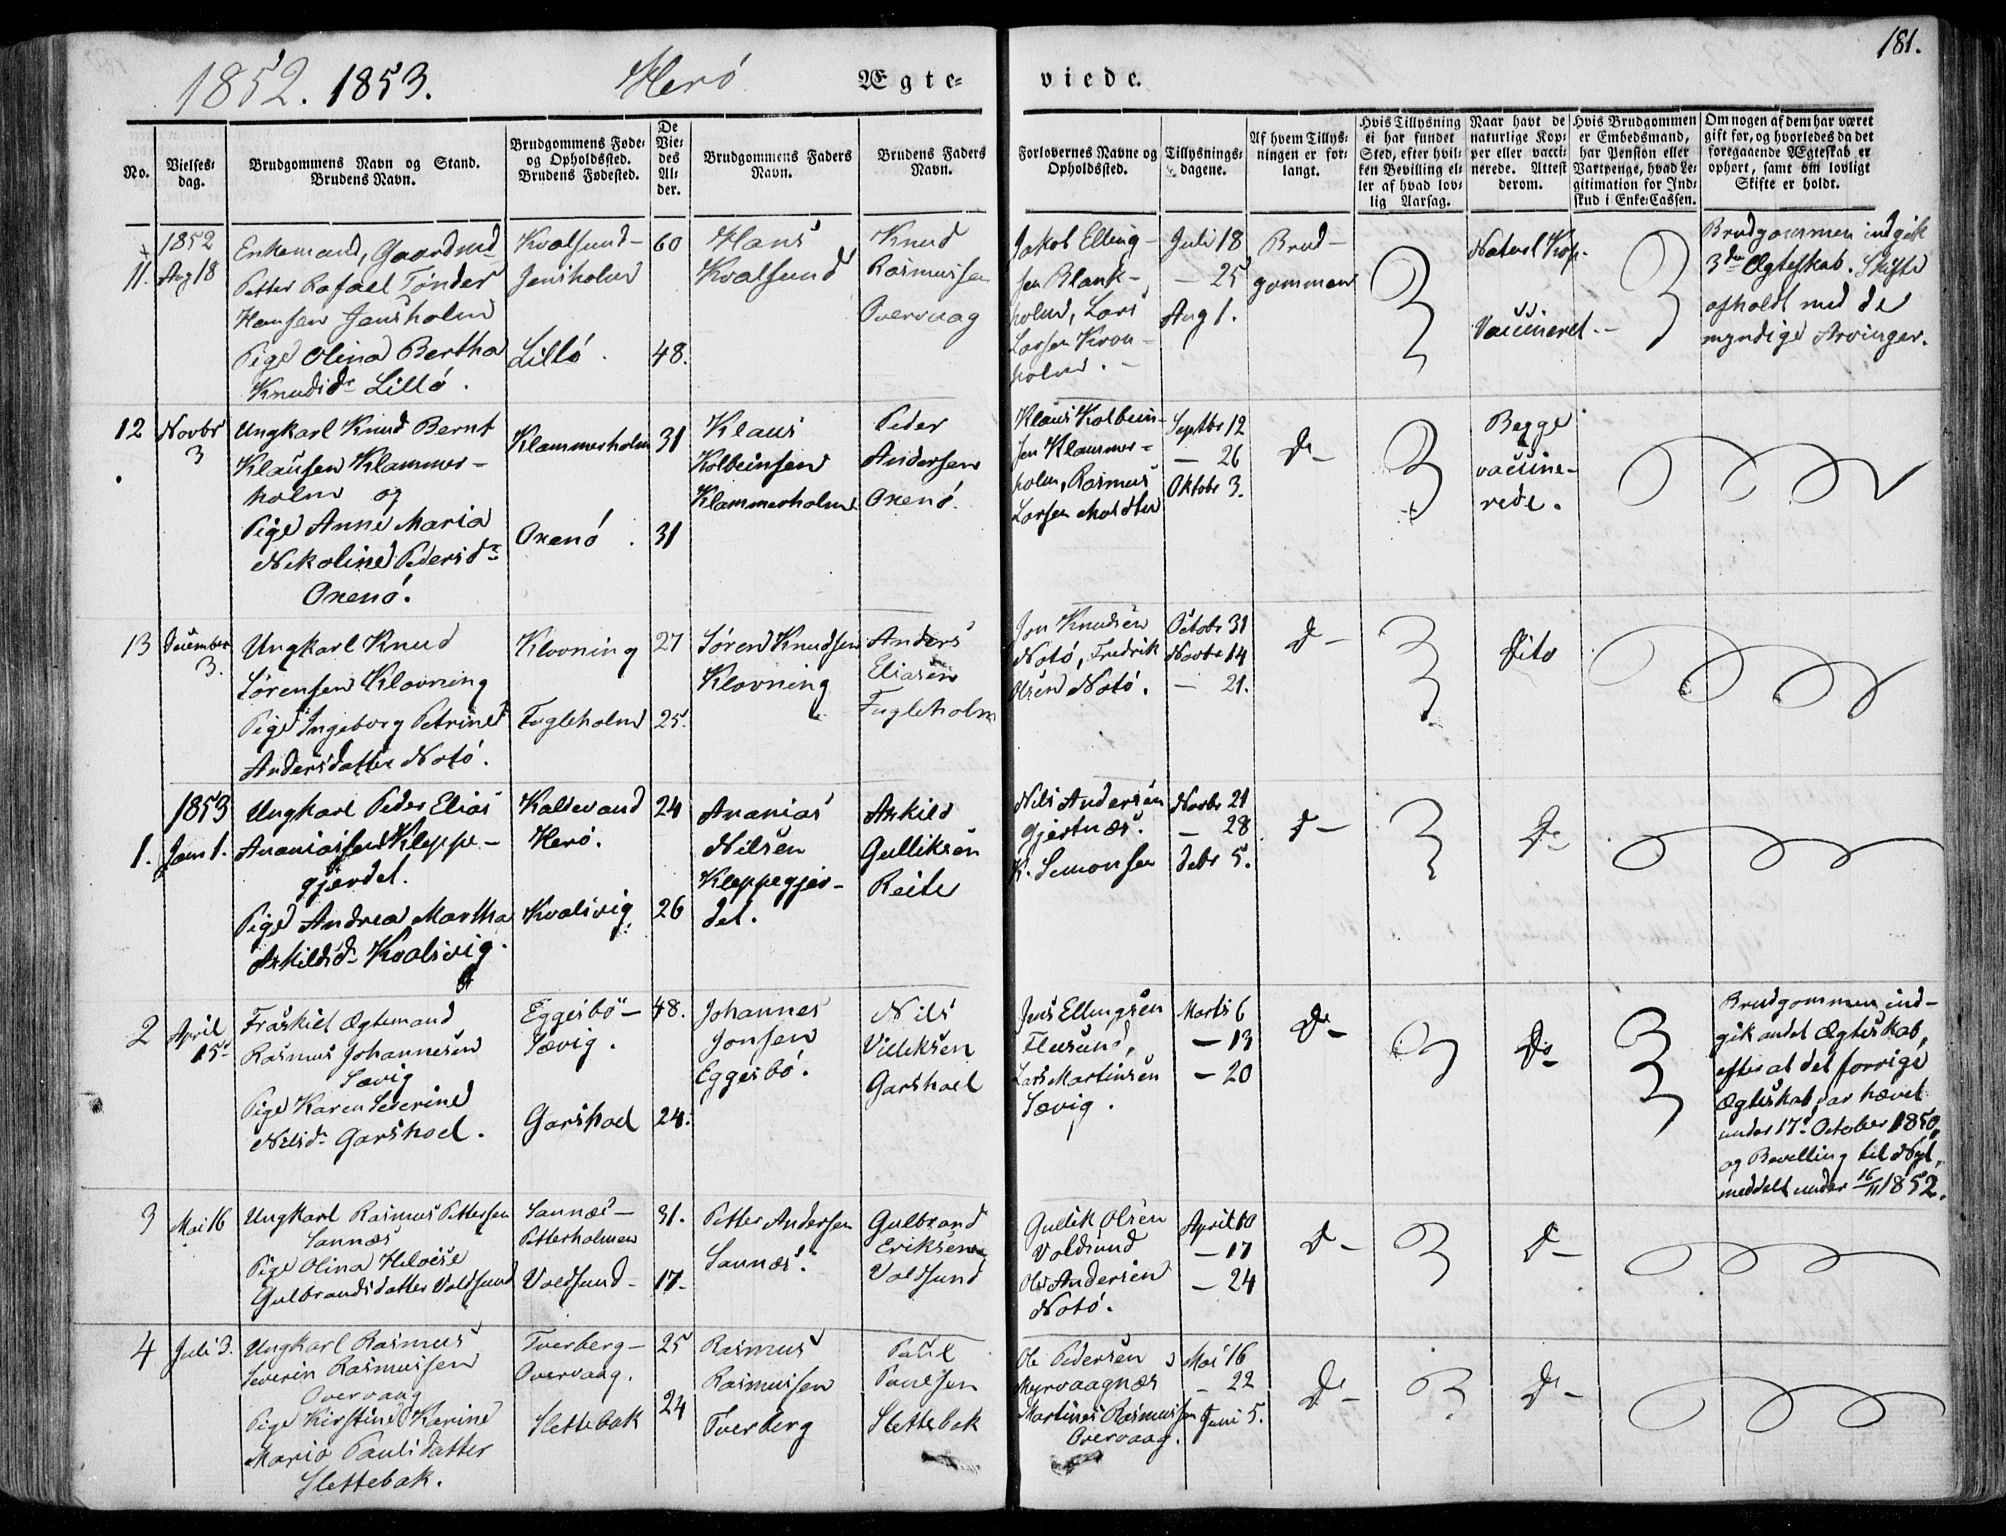 181.
1852. 1853. Herö Ægte- viede.
No.
Vielses-
dag.
Brudgommens Navn og Stand.
Brudens Navn.
Brudgommens Føde-
og Opholdssted.
Brudens Fødested.
De
Vie-
des
Al-
der.
Brudgommens Faders
Navn.
Brudens Faders
Navn.
Forlovernes Navne og
Opholdssted.
Tillysnings-
dagene.
Af hvem Tillys-
ningen er for-
langt.
Hvis Tillysning
ei har fundet
Sted, efter hvil-
ken Bevilling el-
ler af hvad lov-
lig Aarsag.
Naar havt de
naturlige Kop-
per eller vacci-
nerede. Attest
derom.
Hvis Brudgommen
er Embedsmand,
har Pension eller
Vartpenge, hvad Le-
gitimation for Ind-
skud i Enke-Cassen.
Om nogen af dem har været
gift før, og hvorledes da det
foregaaende Ægteskab er
ophørt, samt om lovligt
Skifte er holdt.
1852
11. Aug 18
Enkemand, Gaardmd
Petter Rafael Tønder
Hansen Jensholm
Pige Olina Bertha
Knudsdr Lillö.
Kvalsund-
Jensholm
Lillö.
60
48.
Hans
Kvalsund
Knud
Rasmussen
Overvaag
Jakob Elling-
sen Blank-
holm, Lars
Larsen Kron-
holm. -
Juli 18
- 25
Aug 1.
Brud-
gommen
Naturl Kop.
Vaccineret.
Brudgommen indgik
3die Ægteskab. Skifte
afholdt med de
myndige Arvinger.
12 Novbr
3
Ungkarl Knud Bernt
Klausen Klammer-
holm og
Pige Anne Maria
Nikoline Pedersdr
Oxenö.
Klammerholm
Oxenö.
31
31
Klaus
Kolbeinsen
Klammerholm
Peder
Andersen
Oxenö.
Klaus Kolbein-
sen Klammer-
holm, Rasmus
Larsen Moldtu
Septbr 12
- 26
Oktobr 3.
Do-
Begge
vaccine-
rede.
13 December
3.
Ungkarl Knud
Sørensen Klovning
Pige Ingeborg Petrine
Andersdatter Notö.
Klovning
Fugleholm
27
25.
Søren Knudsen
Klovning
Anders
Eliasen
Fugleholm
Jon Knudsen
Notö, Fredrik
Olsen Notö.
Octobr 31
Novbr 14
- 21.
Do-
Dito
1853
1. Jan 1.
Ungkarl Peder Elias
Ananiassen Kleppe-
gjerdet.
Pige Andrea Martha
Askildsdr Kvalsvig.
Kaldevand
Herö.
Kvalsvig
24
26
Ananias
Nilsen
Kleppegjer-
det.
Askild
Gulliksen
Reite
Nils Andersen
Gjertnæs.
K. Semonsen
Novbr 21
- 28
Debr 5.
Do-
Do
2 April
15de
Fraskilt Ægtemand
Rasmus Johannesen
Sævig
Pige Karen Severine
Nilsdr Garshoel.
Eggesbö-
Sævig.
Garshoel
48.
24.
Johannes
Jonsen
Eggesbö.
Nils
Villiksen
Garshoel
Jens Ellingsen
Flusund,
Lars Martinsen
Sævig.
Marts 6
- 13
- 20
Do-
Do
Brudgommen ind-
gik andet Ægteskab,
efter at det forrige
Ægteskab var hævet
under 17de October 1850,
og Bevilling til Nyt,
meddelt under 16/11 1852.
3 Mai 16
Ungkarl Rasmus Pettersen
Sannæs
Pige Olina Heloise
Gulbrandsdatter Voldsund
Sannæs-
Petterholmen
Voldsund-
31.
17.
Petter Andersen
Sannæs.
Gulbrand
Eriksen
Voldsund
Gullik Olsen
Voldsund
Ole Andersen
Notö.
April 10
- 17
- 24
Do-
Do-
4 Juli 3.
Ungkarl Rasmus
Severin Rasmussen
Overvaag
Pige Kirstine Karine
Maria Paulsdatter
Slettebak.
Tverberg-
Overvaag.
Slettebak
25
24
Rasmus
Rasmussen
Tverberg
Paul
Paulsen
Slettebak
Ole Pedersen
Myrvaagnæs
Martines Rasmussen
Overvaag.
Mai 16
- 22
Juni 5.
Do-
Do-